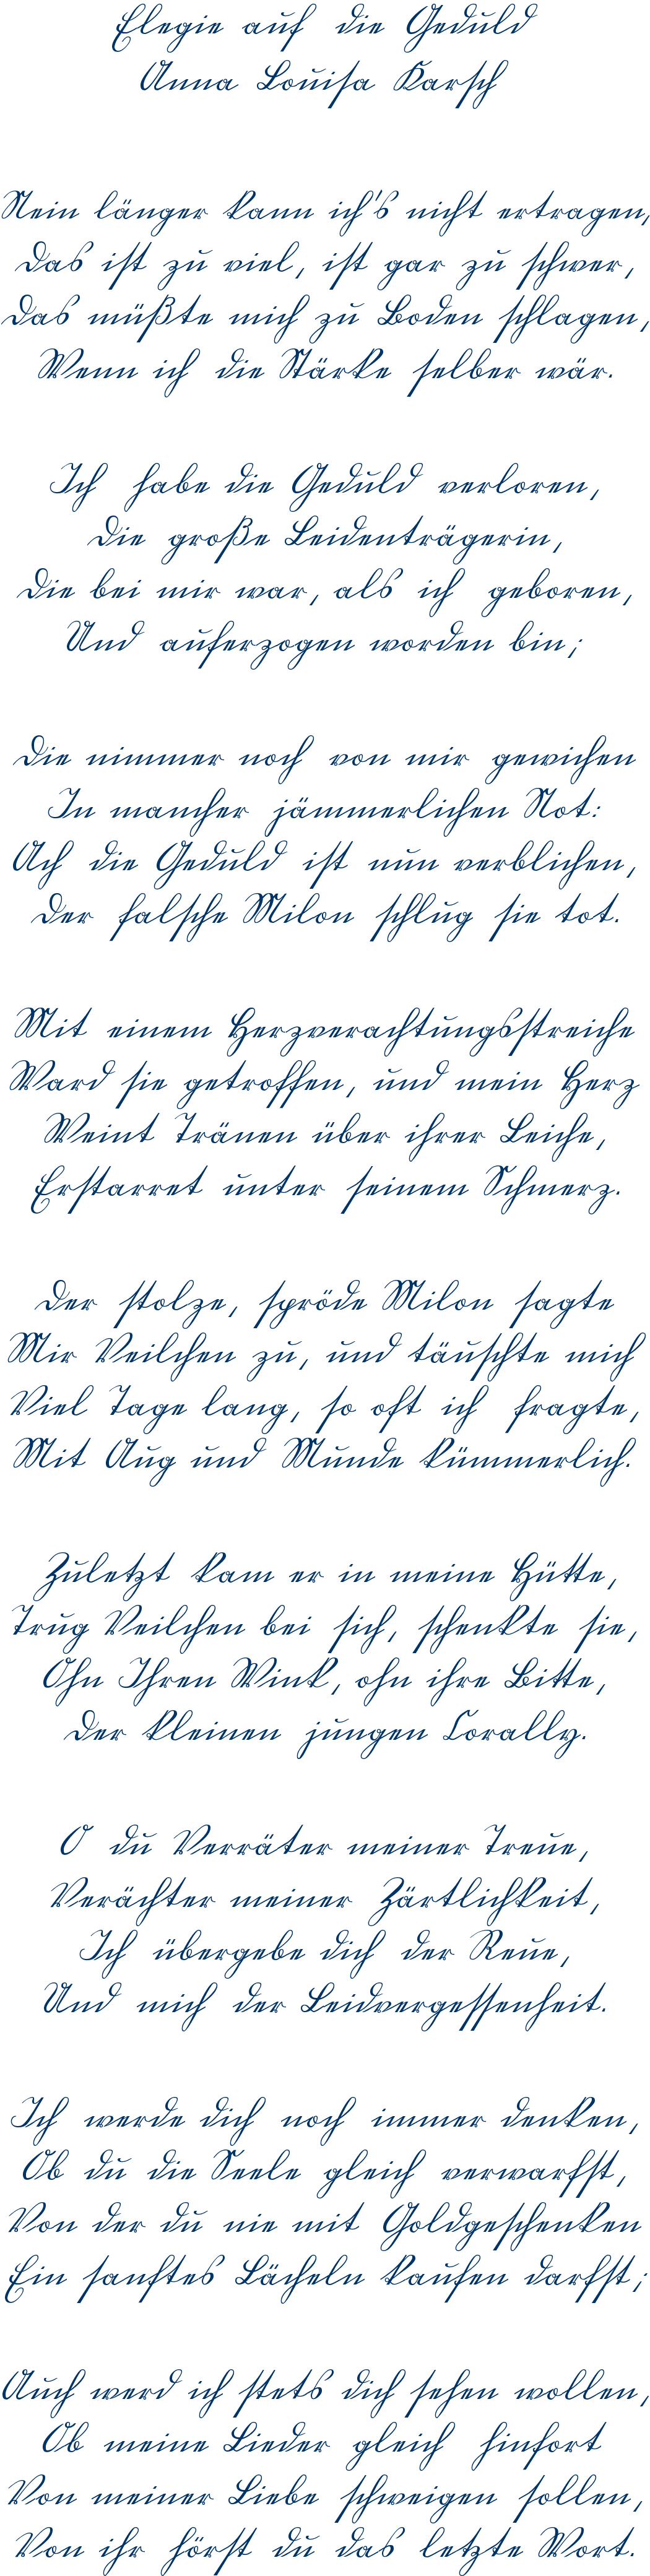 Elegie auf die Geduld
Anna Louisa Karsch
Nein länger kann ich's nicht ertragen,
Das ist zu viel, ist gar zu schwer,
Das müßte mich zu Boden schlagen,
Wenn ich die Stärke selber wär.
Ich habe die Geduld verloren,
Die große Leidenträgerin,
Die bei mir war, als ich geboren,
Und auferzogen worden bin;
Die nimmer noch von mir gewichen
In mancher jämmerlichen Not:
Ach die Geduld ist nun verblichen,
Der falsche Milon schlug sie tot.
Mit einem Herzverachtungsstreiche
Ward sie getroffen, und mein Herz
Weint Tränen über ihrer Leiche,
Erstarret unter seinem Schmerz.
Der stolze, spröde Milon sagte
Mir Veilchen zu, und täuschte mich
Viel Tage lang, so oft ich fragte,
Mit Aug und Munde kümmerlich.
Zuletzt kam er in meine Hütte,
Trug Veilchen bei sich, schenkte sie,
Ohn Ihren Wink, ohn ihre Bitte,
Der kleinen jungen Corally.
O du Verräter meiner Treue,
Verächter meiner Zärtlichkeit,
Ich übergebe dich der Reue,
Und mich der Leidvergessenheit.
Ich werde dich noch immer denken,
Ob du die Seele gleich verwarfst,
Von der du nie mit Goldgeschenken
Ein sanftes Lächeln kaufen darfst;
Auch werd ich stets dich sehen wollen,
Ob meine Lieder gleich hinfort
Von meiner Liebe schweigen sollen,
Von ihr hörst du das letzte Wort.